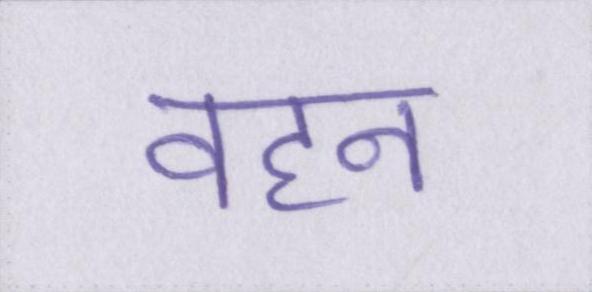 वहन